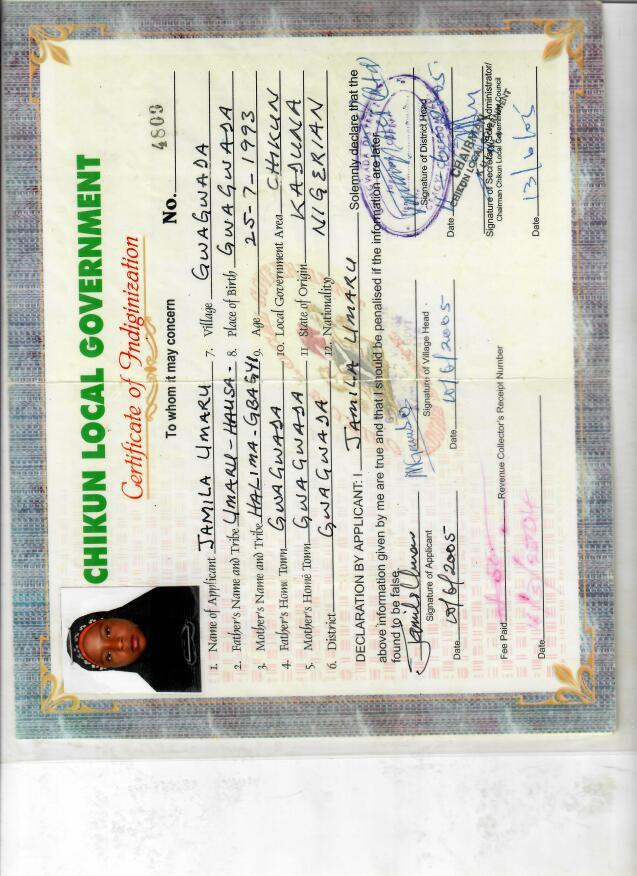 CHIKUN LOCAL GOVERNMENT
Certificate of Indiginization
To whom it may concern
No. 4809
1. Name of Applicant JAMILA UMARU
2. Father's Name and Tribe UMARU-HAUSA-
3. Mother's Name and Tribe HALIMA-GBAGYI
4. Father's Home Town GWAGWADA
5. Mother's Home Town GWAGWADA
6. District GWAGWADA
7. Village GWAGWADA
8. Place of Birth GWAGWADA
9. Age 25-7-1993
10. Local Government Area CHIKUN
11 State of Origin KADUNA
12. Nationality NIGERIAN
DECLARATION BY APPLICANT: I JAMILA UMARU Solemnly declare that the
above information given by me are true and that I should be penalised if the information are later
found to be false
Signature of Applicant
Date 10/6/2005
Signature of Village Head
Date 10/6/2005
Signature of District Head
Date
CHAIRMAN
Signature of Secretary/Sole Administrator/
Chairman Chikun Local Government Council
Date 13/6/05
Fee Paid Revenue Collector's Receipt Number
Date